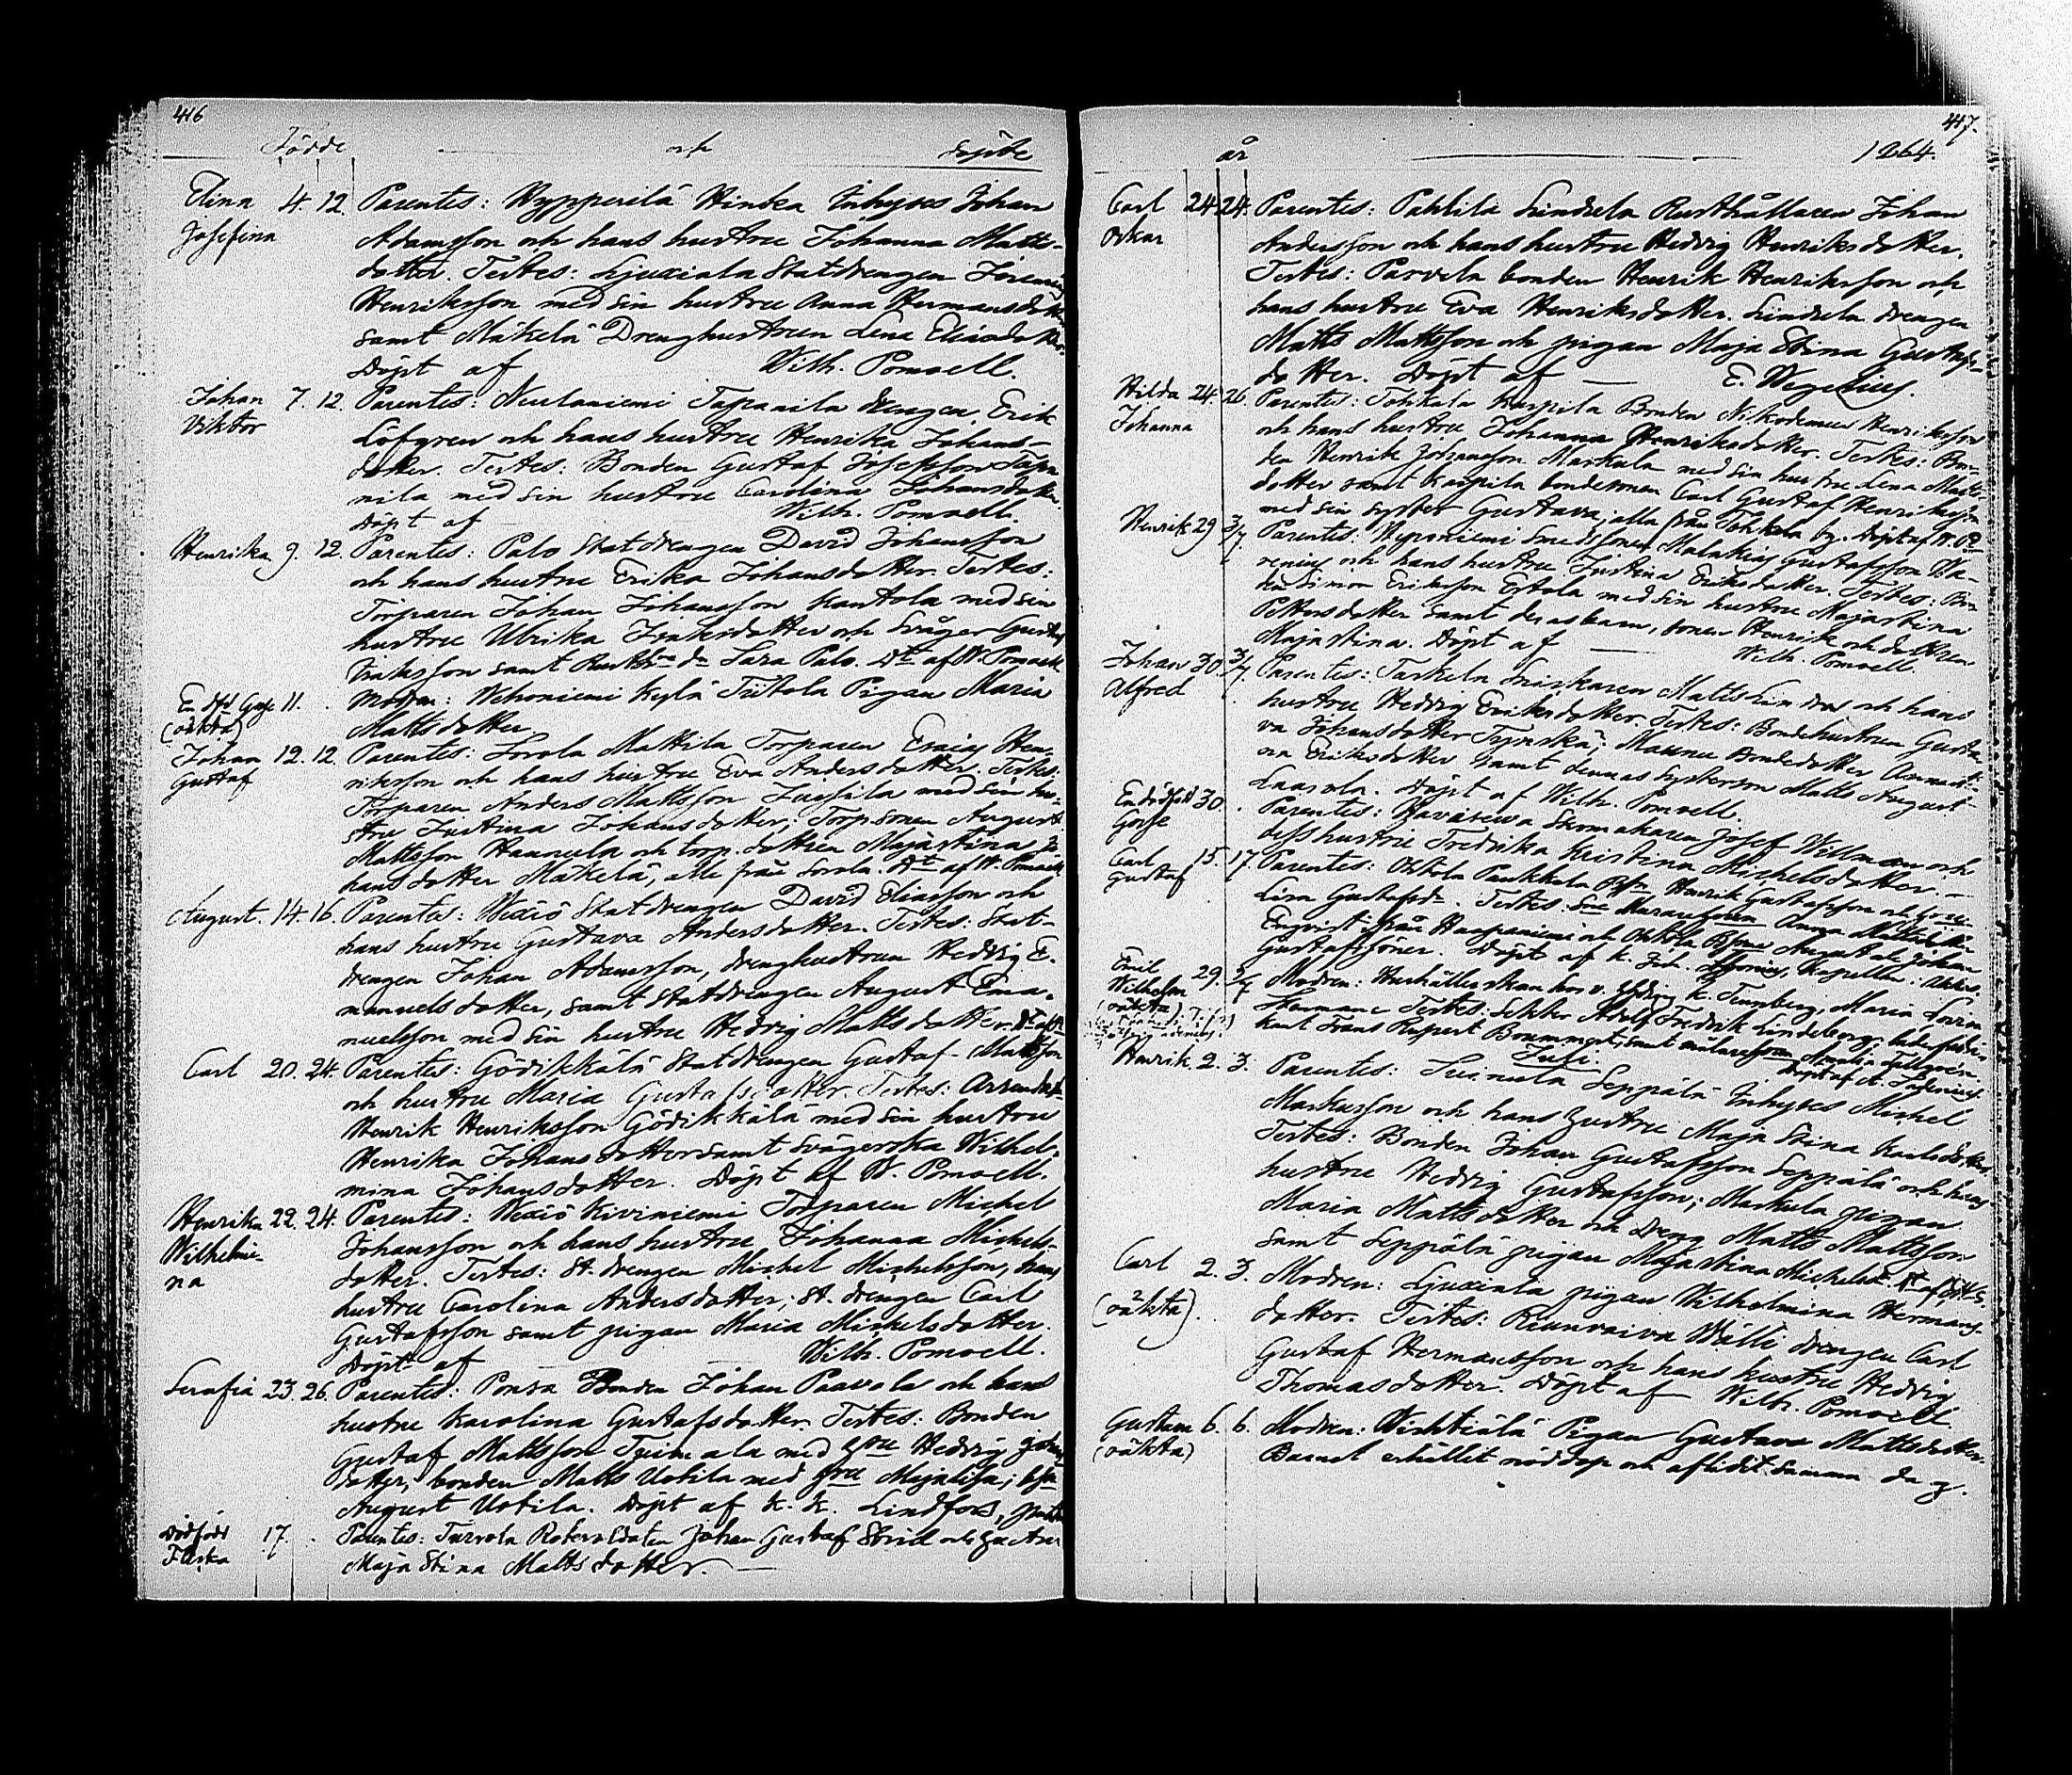 416
Födde och döpte
Elina 4. 12. Parentes: Hypperilä Hinska Inhyses Johan
Josefina Adamsson och hans hustru Johanna Matts-
dotter. Testes: Ljuxiala Statdrengen Jeremias
Henriksson med sin hustru Anna Hermansdotter
samt Mäkelä Drenghustrun Lena Eliasdotter.
Döpt af Wilh. Pomoell.
Johan 7. 12. Parentes: Neulaniemi Tapanila drengen Erik
Viktor Löfgren och hans hustru Henrika Johans-
dotter. Testes: Bonden Gustaf Josefsson Tapa
nila med sin hustru Carolina Johansdotter.
Döpt af Wilh. Pomoell.
Henrika 9. 12. Parentes: Palo Statdrengen David Johansson
och hans hustru Erika Johansdotter. Testes:
Torparen Johan Johansson Kantola med sin
hustru Ulrika dotter och Svåger Gustaf
Eriksson samt Sara Palo. Dt af W. Pomoell
En dfd Gosse 11. Modren: Wehoniemi Kylä Tiitola Pigan Maria
(oäkta) Mattsdotter
Johan 12. 12. Parentes: Sorola Mattila Torparen Esaias Hen-
Gustaf riksson och hans hustru Eva Andersdotter. Testes:
Torparen Anders Mattsson Jussila med sin hu-
stru Justina Johansdotter; Torpsonen August
Mattsson Hannula och torp. dottren Majastina Jo
hansdotter Mäkelä, alle från Sorola. Dt af W. Pomoell
August. 14. 16. Parentes: Wexiö Statdrengen David Eliasson och
hans hustru Gustava Andersdotter. Testes: Stat-
drengen Johan Adamsson, drenghustrun Hedvig E-
manuelsdotter, samt Statdrengen August Ema-
nuelsson med sin hustru Hedvig Mattsdotter.
Carl 20. 24. Parentes: Gödikkälä Statdrengen Gustaf Mattsson
och hustru Maria Gustafsdotter. Testes:
Henrik Henriksson Gödikkälä med sin hustru
Henrika Johansdotter samt Svägerska Wilhel-
mina Johansdotter. Döpt af W. Pomoell.
Henrika 22. 24. Parentes: Wexiö Kiviniemi Torparen Michel
Wilhelmi- Johansson och hans hustru Johanna Michels-
na dotter. Testes: St. drengen Michel Michelsson, hans
hustru Carolina Andersdotter; St. drengen Carl
Gustafsson samt pigan Maria Michelsdotter.
Döpt af Wilh. Pomoell.
Serafia 23. 26. Parentes: Ponsa Bonden Johan Paavola och hans
hustru Karolina Gustafsdotter. Testes: Bonden
Gustaf Mattsson med Hedvig Johans
dotter, bonden Matts Uotila med Majalisa;
August Uotila. Döpt af K. K. Lindfors,
Dödfödd 17. Parentes: Turvola Rotesoldaten Johan Gustaf Strid och hustru
Flicka Maja Stina Mattsdotter.
417.
år 1864.
Carl 24. 24. Parentes: Pahlila Lundela Rusthållaren Johan
Oskar Andersson och hans hustru Hedvig Henriksdotter.
Testes: Parvela bonden Henrik Henriksson och
hans hustru Eva Henriksdotter. Lundela drengen
Matts Mattsson och pigan Maja Stina Gustafs-
dotter. Döpt af E. Wegelius.
Hilda 24. 26. Parentes: Tohkala Karpila Bonden Nikodemus Henriksson
Johanna och hans hustru Johanna Henriksdotter. Testes: Bon-
den Henrik Johansson Markula med sin hustru Lena Matts-
dotter samt Karpila bondesonen Carl Gustaf Henriksson
med sin syster Gustava; alla från Tohkala by. Döpt af
Henrik 29 3/7. Parentes: Smedssonen Malakias Gustafsson Wa-
renius och hans hustru Justina Eriksdotter. Testes: Bon
den Simon Eriksson Ertola med sin hustru Majastina
Pettersdotter samt deras barn, sonen Henrik och dottren
Majastina. Döpt af Wilh. Pomoell.
Johan 30. 3/7. Parentes: Snickaren Matts Lindros och hans
Alfred hustru Hedvig Eriksdotter. Testes: Bondehustrun Gusta
va Johansdotter Tynskä; Maunu Bondedotter
na Eriksdotter samt dennas systerson Matts August
Laasola. Döpt af Wilh. Pomoell.
En dödfödd 30. Parentes: Havisewa Skomakaren Josef Willman och
Gosse dess hustru Fredrika Kristina Michelsdotter.
Carl 15. 17. Parentes: Ohtola Penkkala Henrik Gustafsson och
Gustaf Lisa Gustafsd. Testes: Anna Mattsdotter
Engvist från Haapaniemi och Ohtola August och Johan
Gustafssöner. Döpt af
Emil 29. Modren: Hushållerskan hos Tennberg, Maria Lovisa
Wilhelm Testes: Adolf Fredrik Lindeberg,
(oäkta) Frans Rupert Brummert, samt
Juli.
Henrik 2. 3. Parentes: Suinula Seppälä Inhyses Michel
Markusson och hans hustru Maja Stina Karlsdotter.
Testes: Bonden Johan Gustafsson Seppälä och hans
hustru Hedvig Gustafsson; Markula pigan
Maria Mattsdotter och dreng Matts Mattsson
samt Seppälä pigan Majastina Michelsd.
Carl 2. 3. Modren: Ljuxiala pigan Wilhelmina Hermans-
(oäkta). dotter. Testes: Wälli drengen Carl
Gustaf Hermansson och hans hustru Hedvig
Thomasdotter. Döpt af Wilh. Pomoell
Gustava 6. 6. Modren: Wihtiälä Pigan Gustava Mattsdotter.
(oäkta) Barnet erhållit nöddop och aflidit samma dag.